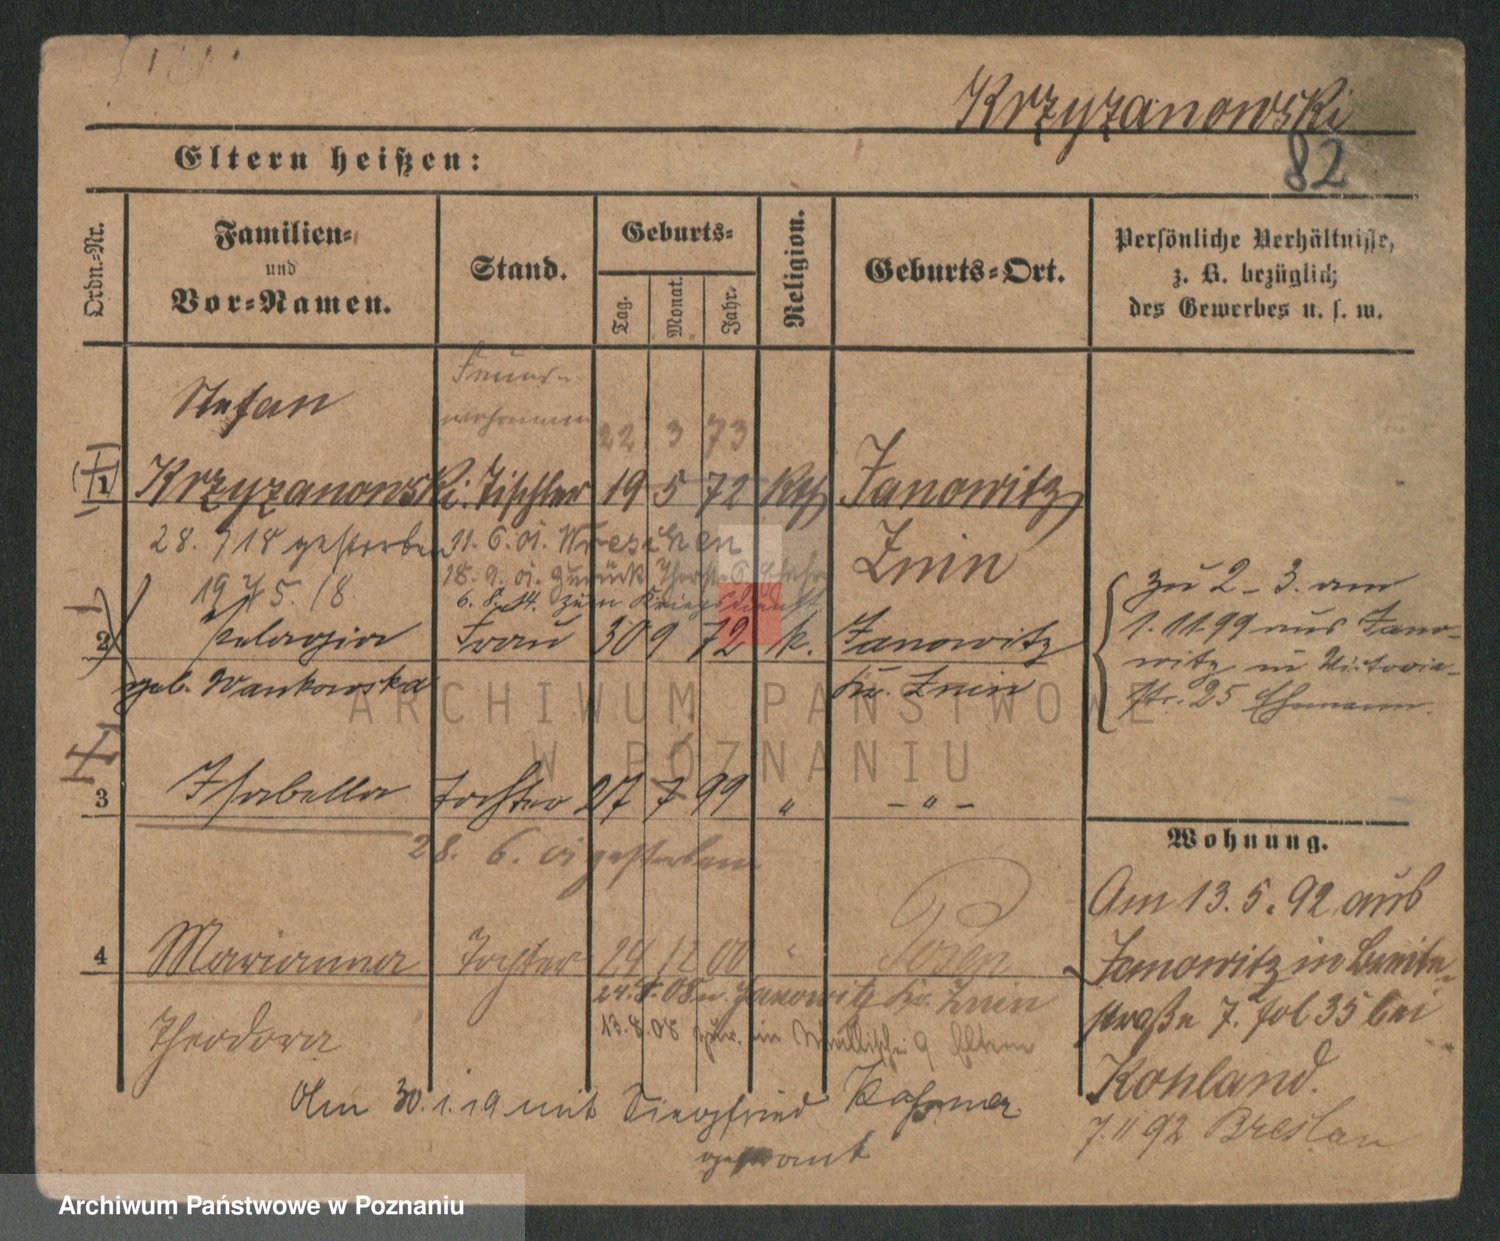 Krzyzanowski
82
Eltern heißen:
Ordn.-Nr.
Familien-
und
Vor-Namen.
Stand.
Geburts-
Tag.
Monat.
Jahr.
Religion.
Geburts-Ort.
Persönliche Verhältnisse,
z. B. bezüglich
des Gewerbes u. s. w.
Stefan
22 3 73
1 Krzyzanowski. Tischler 19 5 72 Kth Janowitz
28. gestorben 11. 6. 01. Wreschen Znin
18. 9. 01. zurück
19 5. 18. 6. 8. 14. zum Kriegsdienst
2 Pelagia Frau 30 9 72 k. Janowitz
geb. Wankowska Kr. Znin
zu 2 - 3. am
1. 11. 99 aus Jano-
witz in Victoria-
str. 25 Ehemann.
3 Isabella Tochter 27 7 99 " - " -
28. 6. 01 gestorben
Wohnung.
Am 13. 5. 92 aus
Janowitz in Breite-
straße 7. fol 35 bei
Kohland.
7. 11 92 Breslau
4 Marianna Tochter 24 12 00 " Posen
24. 5. 08 n. Janowitz Kr. Znin
Theodora 13. 8. 08 zur. in 9 Eltern
Am 30. 1. 19 mit Siegfried
getraut
ARCHIWUM PAŃSTWOWE
W POZNANIU
Archiwum Państwowe w Poznaniu